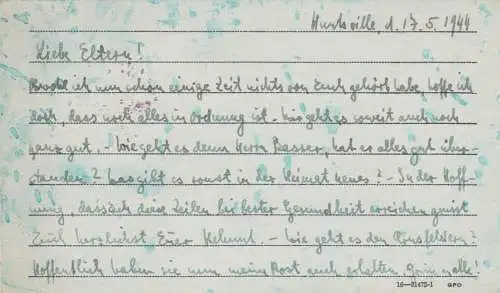 Huntsville, d. 17.5.1944
Liebe Eltern!
Obwohl ich nun schon einige Zeit nichts von Euch gehört habe, hoffe ich
doch, dass noch alles in Ordnung ist. - Mir geht es soweit auch noch
ganz gut. - Wie geht es denn Herrn Basser, hat er alles gut über-
standen? Was gibt es sonst in der Heimat neues? - In der Hoff-
nung, dass Euch diese Zeilen bei bester Gesundheit erreichen grüsst
Euch herzlichst Euer Helmut. - Wie geht es den
Hoffentlich haben sie nun meine Post auch erhalten. Grüsse alle.
16—31475-1 GPO